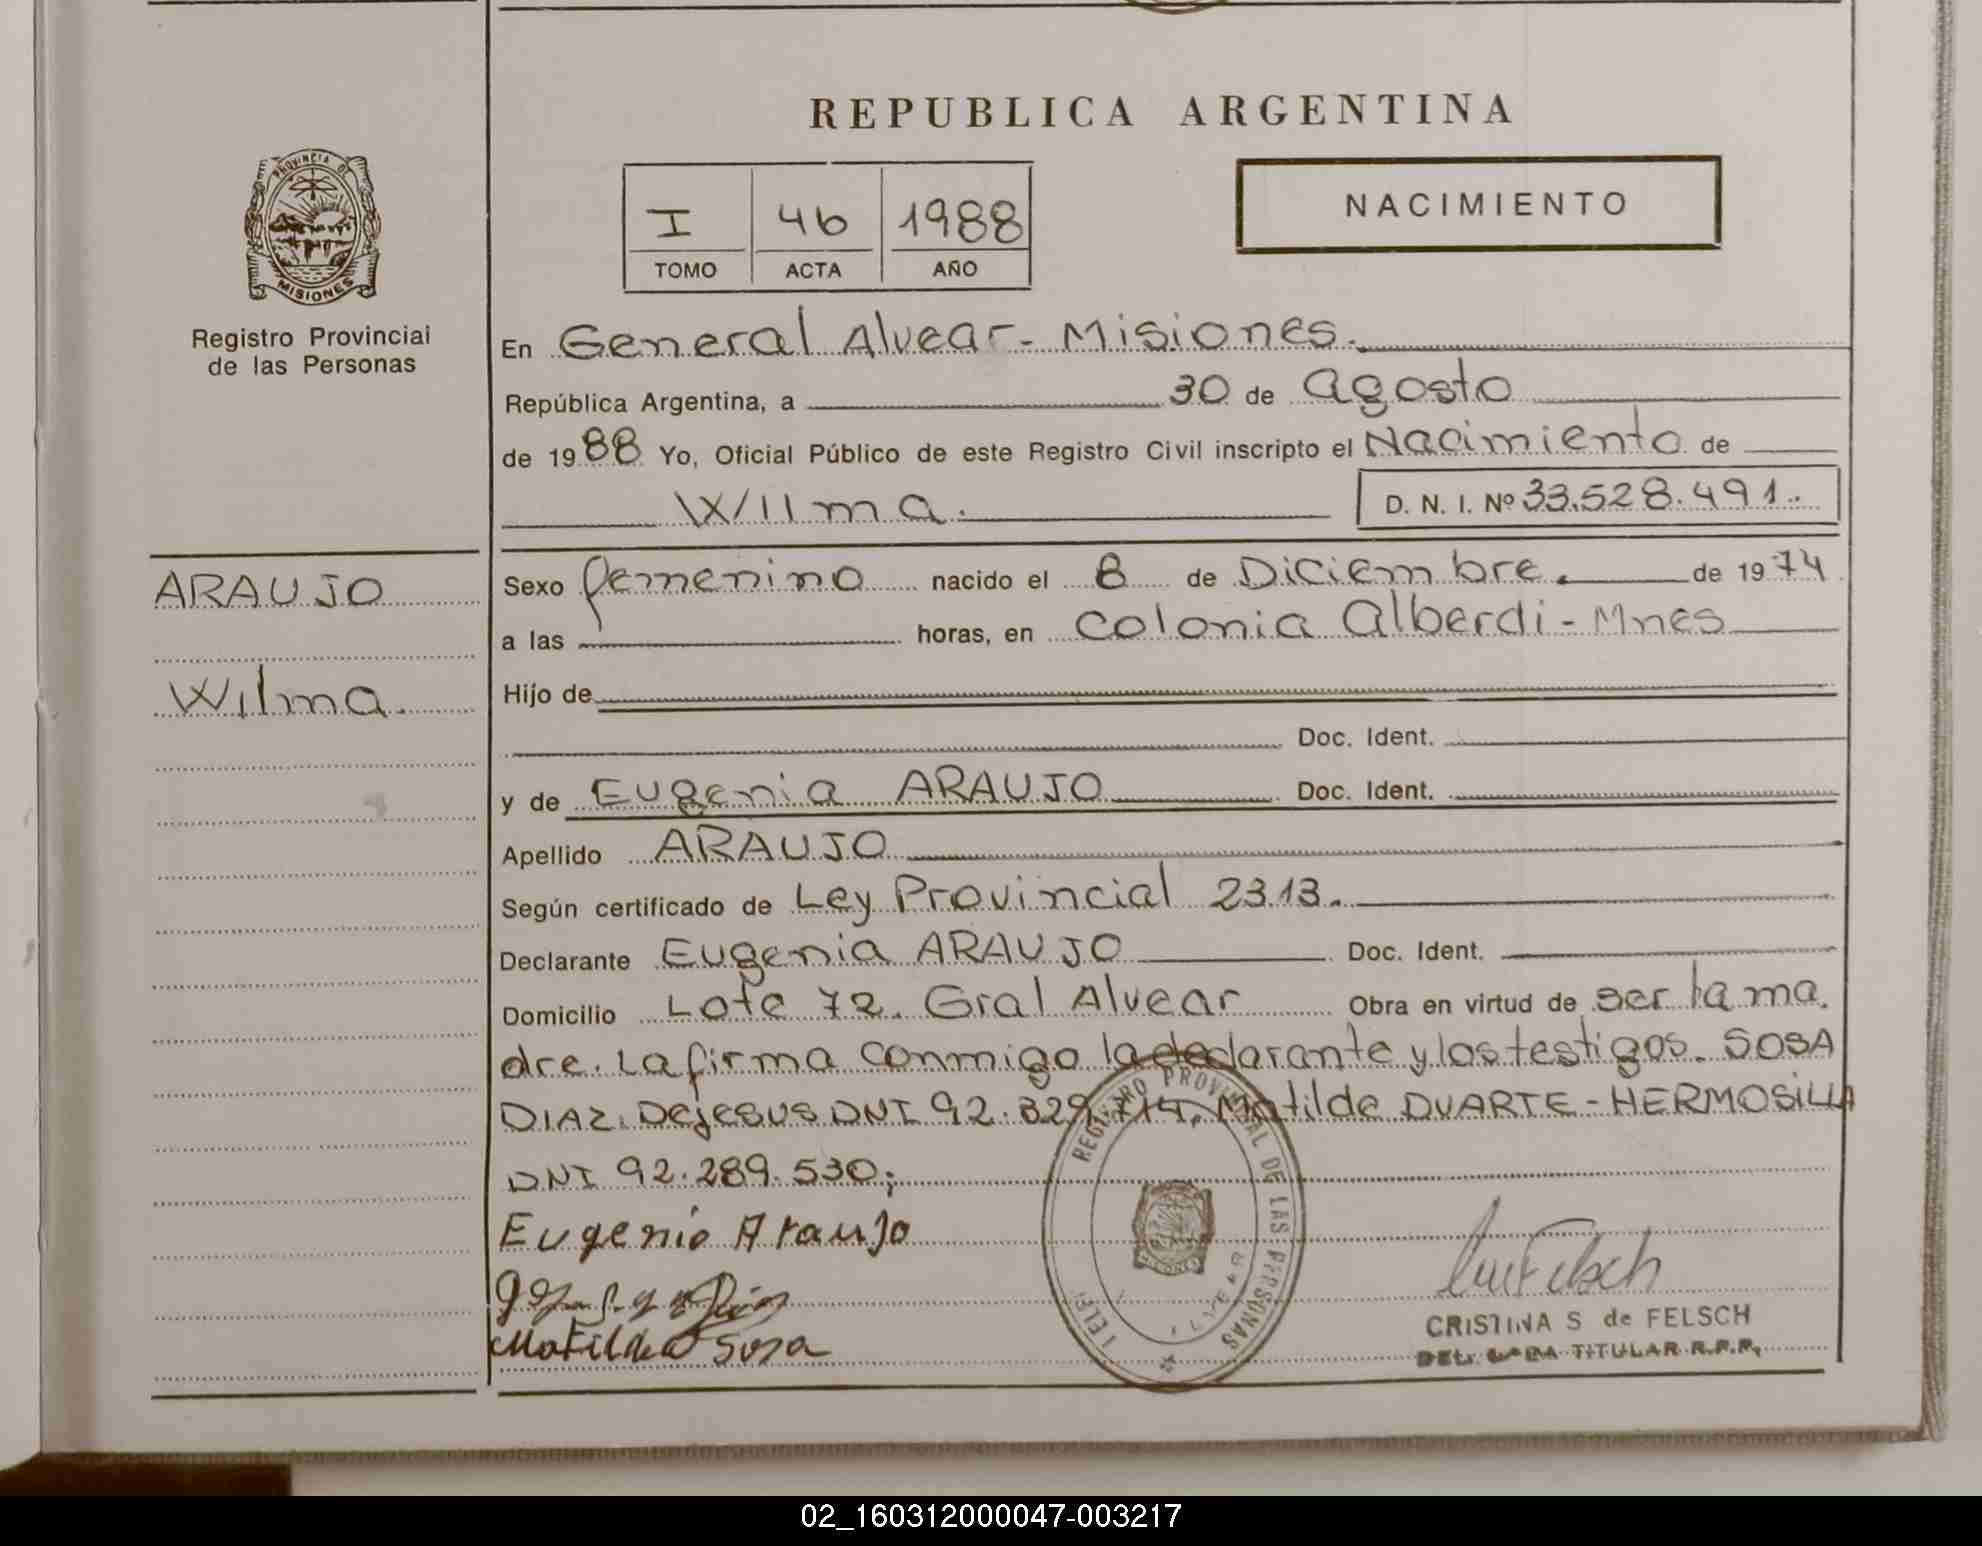 REPUBLICA ARGENTINA
PROVINCIA DE
MISIONES
Registro Provincial
de las Personas
NACIMIENTO
I 46 1988
TOMO ACTA AÑO
En General Alvear - Misiones.
República Argentina, a 30 de agosto
de 1988 Yo, Oficial Público de este Registro Civil inscripto el Nacimiento de
Wilma.
D. N. I. Nº 33.528.491.
ARAUJO
Wilma.
Sexo femenino nacido el 8 de Diciembre. de 1974
a las horas, en colonia Alberdi - Mnes
Hijo de
Doc. Ident.
y de Eugenia ARAUJO Doc. Ident.
Apellido ARAUJO
Según certificado de Ley Provincial 2313.
Declarante Eugenia ARAUJO Doc. Ident.
Domicilio Lote 72. Gral Alvear Obra en virtud de ser la ma.
dre. La firma conmigo la declarante y los testigos. SOSA
DIAZ. DeJesus DNI 92.329.714, Matilde DUARTE - HERMOSILLA
DNI 92.289.530;
Eugenio Araujo
Matilde Sosa
REGISTRO PROVINCIAL DE LAS PERSONAS
CRISTINA S de FELSCH
TITULAR R.P.P.
02_160312000047-003217